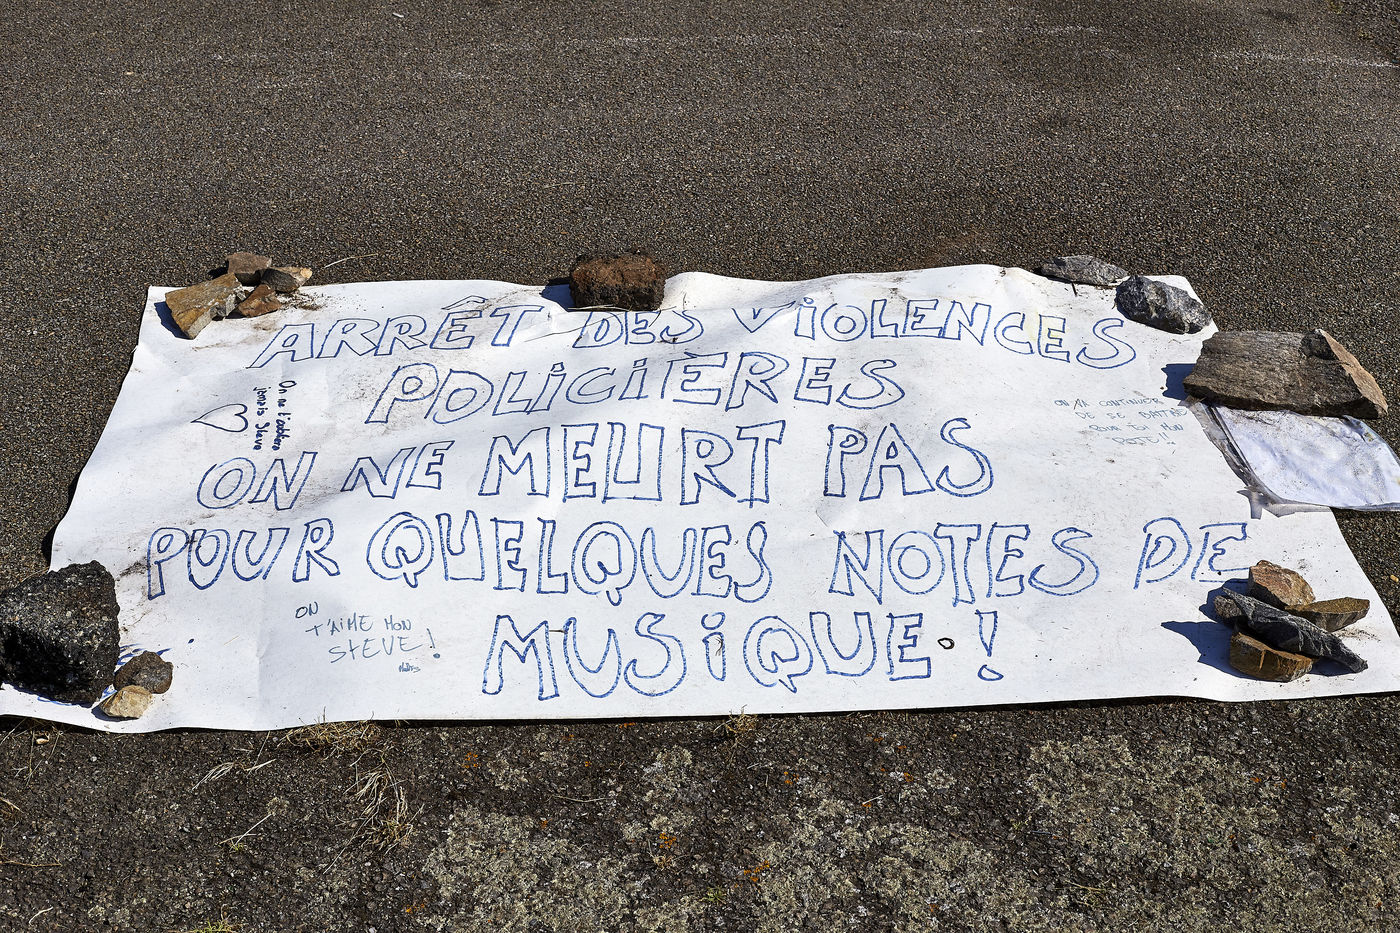 ARRÊT DES ViOLENCES
POLiCiÈRES
ON NE MEURT PAS
POUR QUELQUES NOTES DE
MUSiQUE !
On ne t'oubliera
jamais Steve
ON VA CONTINUER
DE SE BATTRE
POUR TOi MON
POTE !!
ON
T'AiME MON
STEVE !